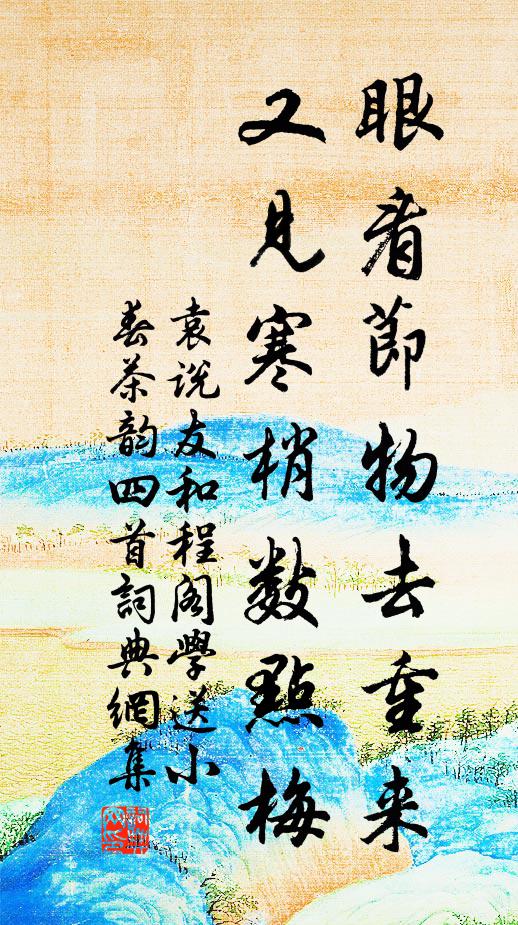 眼看節物去重来
又見寒梢数點梅
袁說友和程阁學送小
春茶韵四首詞典網集